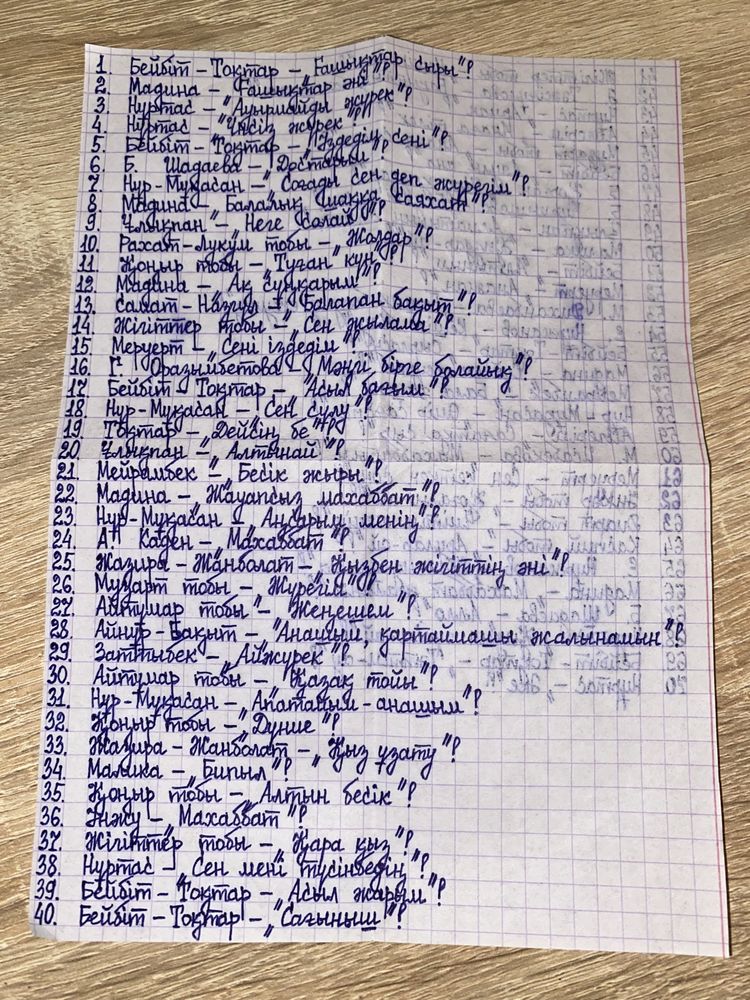 1. Бейбіт – Тоқтар – „Ғашықтар сыры"?
2. Мадина – „Ғашықтар әні"?
3. Нұртас – „Ауырмайды жүрек"?
4. Нұртас – „Үнсіз жүрек"?
5. Бейбіт – Тоқтар – „Іздедім сені"?
6. Б. Шадаева – „Достарым"?
7. Нұр-Мұқасан – „Соғады сен деп жүрегім"?
8. Мадина – „Балалық шаққа саяхат"?
9. Ұлықпан – „Неге солай"?
10. Рахат-лукум тобы – „Жолдар"?
11. Қоңыр тобы – „Туған күн"?
12. Мадина – „Ақ сұңқарым"?
13. Самат-Назгүл – „Балапан бақыт"?
14. Жігіттер тобы – „Сен жылама"?
15. Меруерт – „Сені іздедім"?
16. Г. Оразымбетова – „Мәңгі бірге болайық"?
17. Бейбіт – Тоқтар – „Асыл бағым"?
18. Нұр-Мұқасан – „Сен сұлу"?
19. Тоқтар – „Дейсің бе"?
20. Ұлықпан – „Алтынай"?
21. Мейрамбек – „Бесік жыры"?
22. Мадина – „Жауапсыз махаббат"?
23. Нұр-Мұқасан – „Аңсарым менің"?
24. А. Каден – „Махаббат"?
25. Жазира – Жанболат – „Қызбен жігіттің әні"?
26. Мұқарт тобы – „Жүрегім"?
27. Айтұмар тобы – „Жеңешем"?
28. Айнұр-Бақыт – „Анашым, қартаймашы жалынамын"?
29. Заттыбек – „Айжүрек"?
30. Айтұмар тобы – „Қазақ тойы"?
31. Нұр-Мұқасан – „Апатайым-анашым"?
32. Қоңыр тобы – „Дүние"?
33. Жазира – Жанболат – „Қыз ұзату"?
34. Малика – „Биыл"?
35. Қоңыр тобы – „Алтын бесік"?
36. Інжу – „Махаббат"?
37. Жігіттер тобы – „Қара қыз"?
38. Нұртас – „Сен мені түсінбедің"?
39. Бейбіт – Тоқтар – „Асыл жарым"?
40. Бейбіт – Тоқтар – „Сағыныш"?